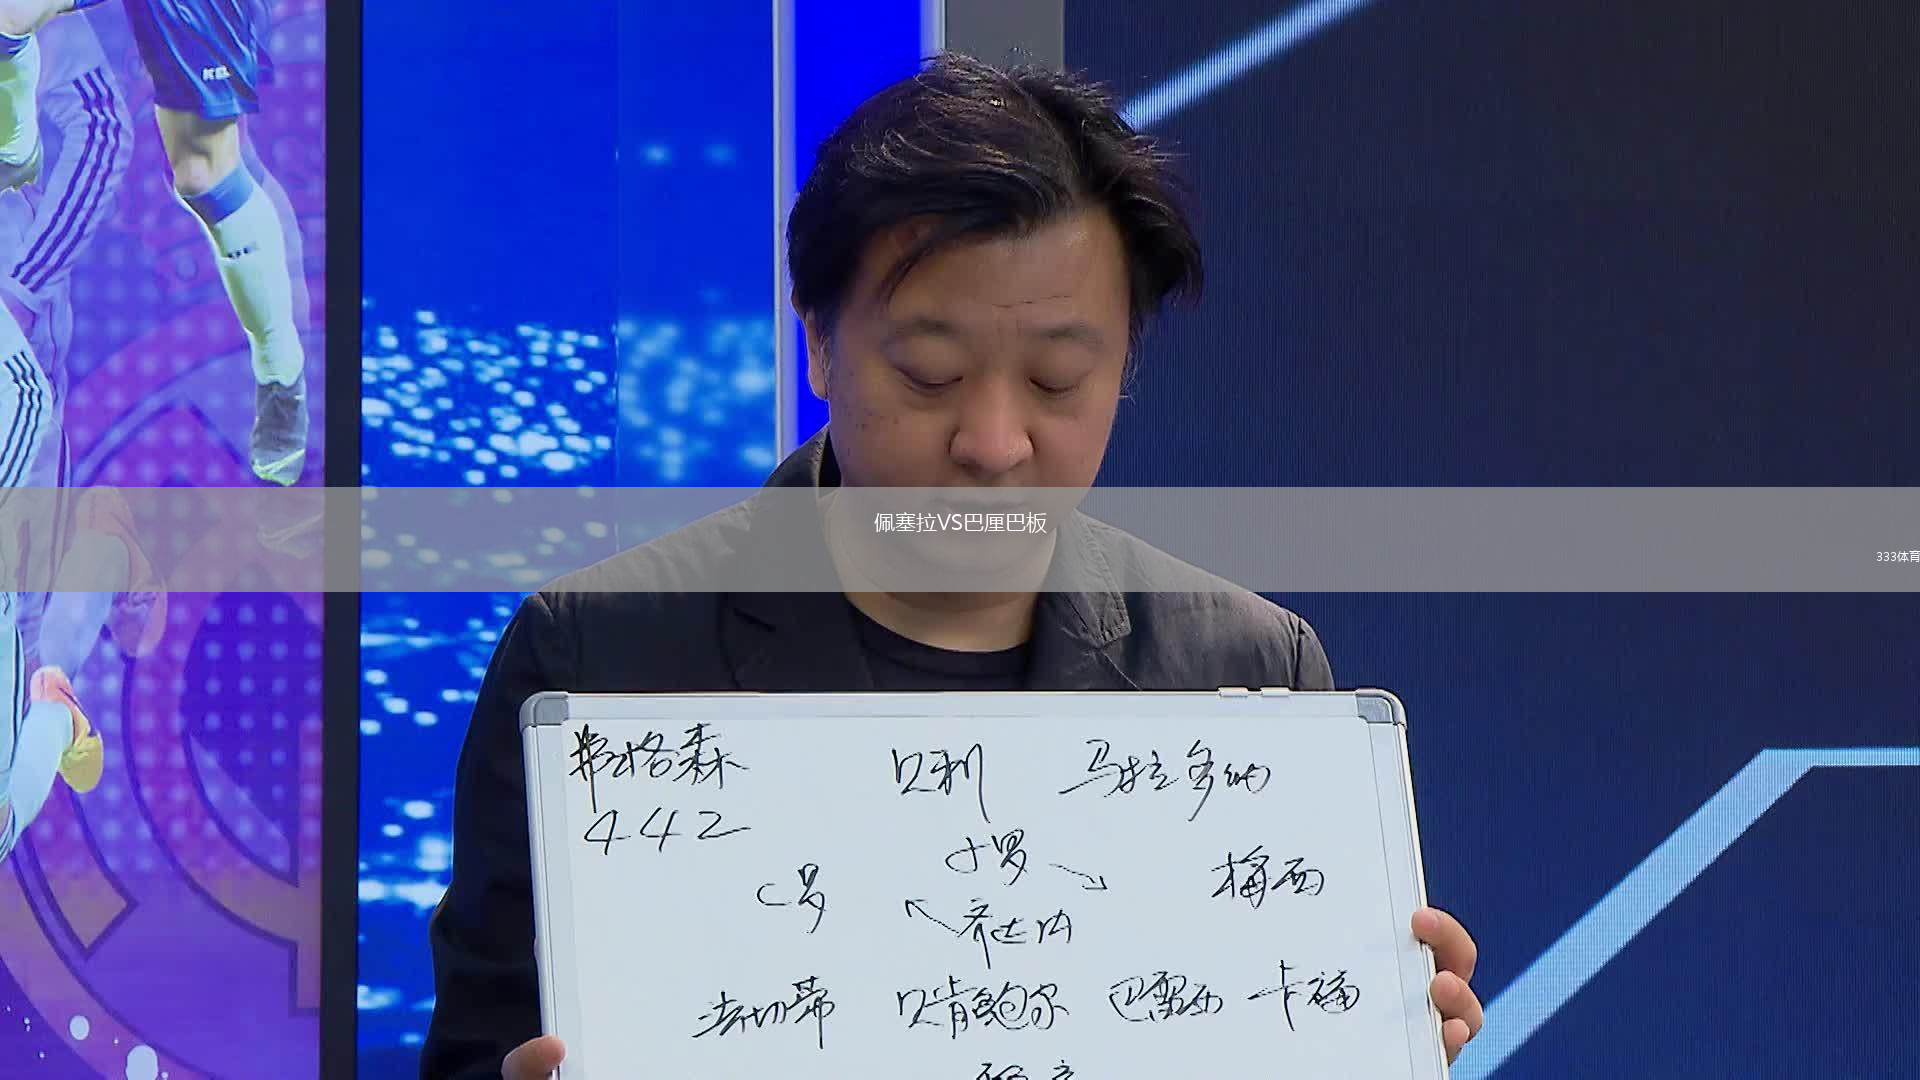 佩塞拉VS巴厘巴板
333体育
弗格森 贝利 马拉多纳
442
小罗
C罗 梅西
齐达内
法切蒂 贝肯鲍尔 巴雷西 卡福